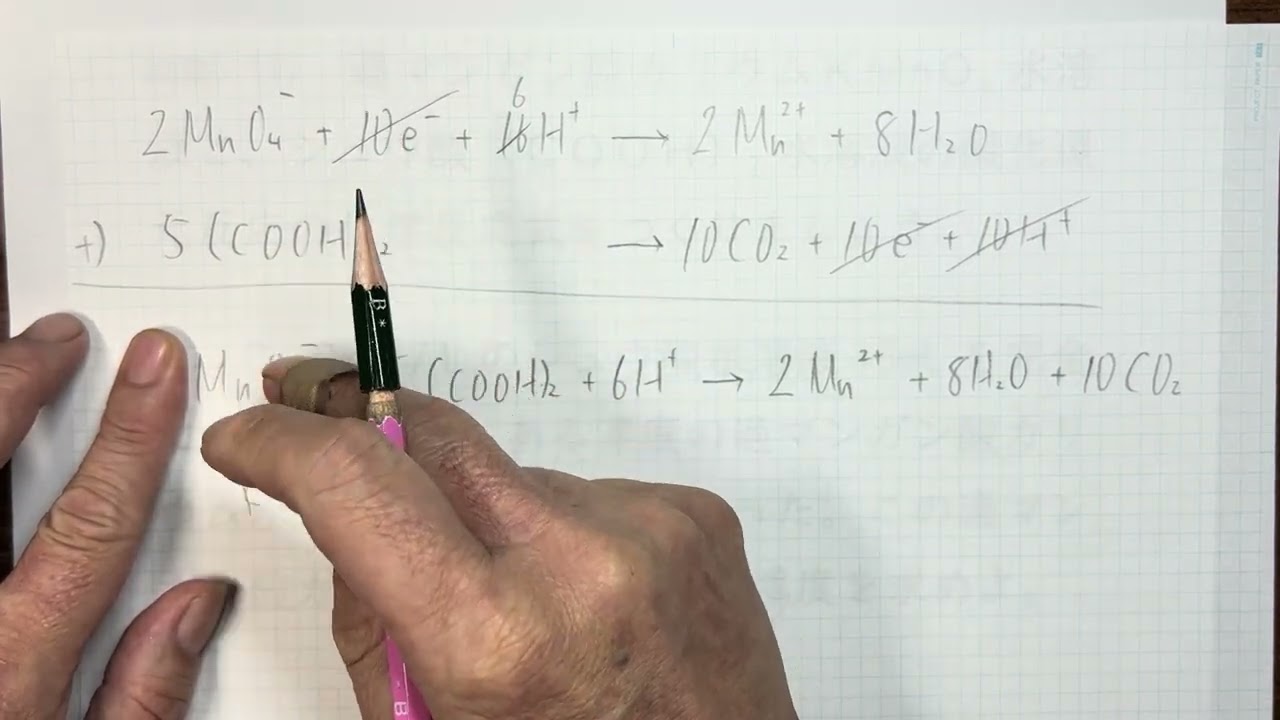 2MnO₄⁻ + 10e⁻ + 16H⁺ → 2Mn²⁺ + 8H₂O
6
+) 5(COOH)₂ → 10CO₂ + 10e⁻ + 10H⁺
Mn (COOH)₂ + 6H⁺ → 2Mn²⁺ + 8H₂O + 10CO₂
B *
B